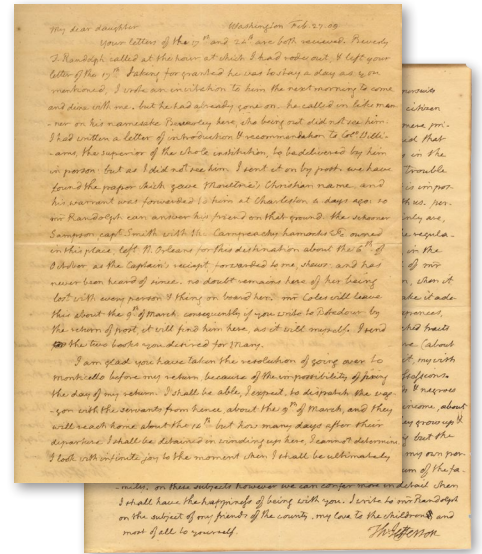 My dear daughter Washington Feb. 27. 09
Your letters of the 17th and 24th are both recieved. Beverly
T. Randolph called at the hour at which I had rode out, & left your
letter of the 17th. Taking for granted he was to stay a day as you
mentioned, I wrote an invitation to him the next morning to come
and dine with me. but he had already gone on. he called in like man
-ner on his namesake Beverley here, who being out did not see him.
I had written a letter of introduction & recommendation to Colo. Willi-
-ams, the superior of the whole institution, to be delivered by him
in person; but as I did not see him, I sent it on by post. we have
found the paper which gave Moultrie's Christian name, and
his warrant was forwarded to him at Charleston a days ago: so
mr Randolph can answer his friend on that ground. the schooner
Sampson capt Smith with the Campeachy hamocks &c owned
in this place, left N. Orleans for this destination about the 6th of
October as the Captain's reciept, forwarded to me, shews: and has
never been heard of since. no doubt remains here of her being
lost with every person & thing on board her. mr Coles will leave
this about the 9th of March. consequently if you write to by
the return of post, it will find him here, as it will myself. I send
the two books you desired for Mary.
I am glad you have taken the resolution of going over to
Monticello before my return, because of the impossibility of fixing
the day of my return. I shall be able, I expect, to dispatch the wag-
-gon with the servants from hence about the 9th of March, and they
will reach home about the 14th but how many days after their
departure I shall be detained in winding up here, I cannot determine.
I look with infinite joy to the moment when I shall be ultimately
citizen
mere pri-
that
s in the
trouble
is impos
per-
only are,
regula-
in the
of mr
, when it
it ade-
tracts
(about
, my with
negroes
income, about
they grow up &
but the
my own per
of the fa-
-mily. on these subjects however we can confer more in detail when
I shall have the happiness of being with you. I write to mr Randolph
on the subject of my friends of the county. my love to the children, and
most of all to yourself.
Th: Jefferson